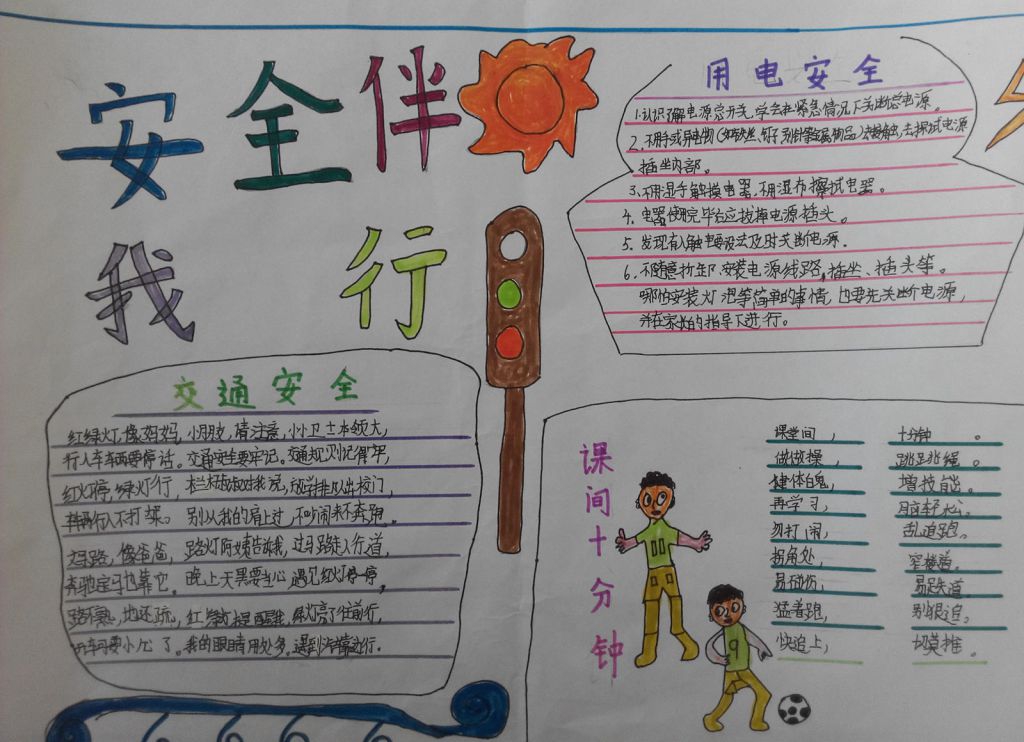 安全伴
我行
用电安全
1.认识了解电源总开关,学会在紧急情况下关断总电源。
2.不用手或导电物(如铁丝、钉子、别针等金属制品)去接触、去探试电源
插座内部。
3.不用湿手触摸电器,不用湿布擦拭电器。
4.电器使用完毕后应拔掉电源插头。
5.发现有人触电要设法及时关断电源。
6.不随意拆卸、安装电源线路,插座、插头等。
哪怕安装灯泡等简单的事情,也要先关断电源,
并在家长的指导下进行。
交通安全
红绿灯,像妈妈,小朋友,请注意,小小卫士本领大,
行人车辆要停话。交通安全要牢记。交通规则记得牢,
红灯停,绿灯行,
别从我的肩上过,不吵闹来不奔跑。
马路,像爸爸,
奔驰宝马也靠它。晚上天黑要当心,遇见红灯停一停,
绿灯亮了往前行,
开车可要小心了。我的眼睛用处多。
课间十分钟
课堂间, 十分钟。
做做操, 跳跳绳。
健体魄, 增技能。
再学习, 脑轻松。
勿打闹, 乱追跑。
拐角处, 窄楼道。
易碰伤, 易跌道
猛着跑, 别狠追。
快追上, 切莫推。
9